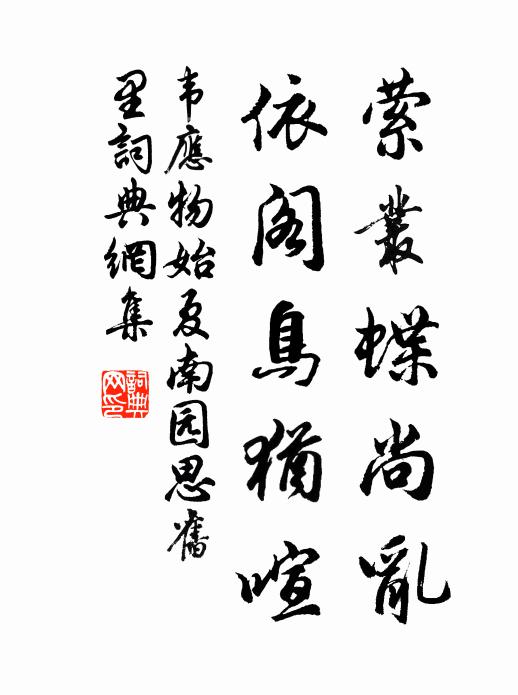 萦叢蝶尚亂
依阁鳥猶喧
韦應物始夏南园思舊
里詞典網集
詞典网印